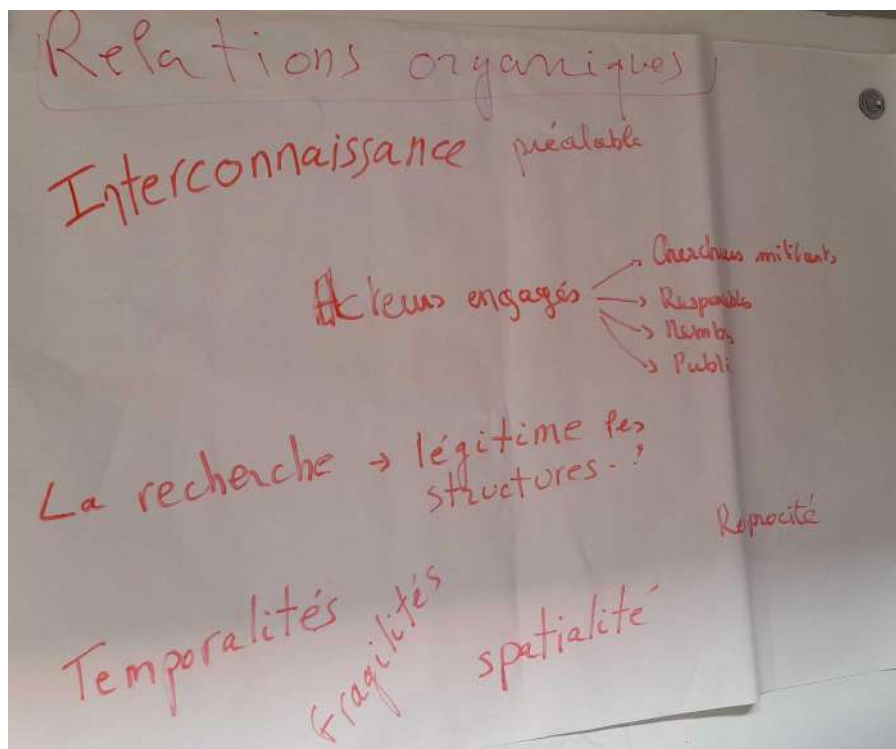 Relations organiques
Interconnaissance préalable
Acteurs engagés
→ Chercheurs militants
→ Responsables
→ Membs
→ Publi
La recherche → légitime les
structures - ?
Reprocité
Temporalités
Fragilités
spatialité